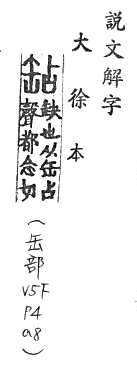 說文解字
大徐本
䍄缺也从缶占
聲都念切
(缶部V5F P4 a8)